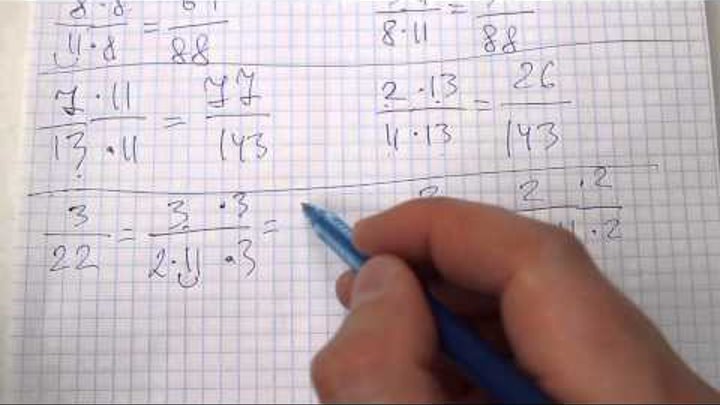 8·8/11·8 = 64/88
8·11 = 88
7·11/13·11 = 77/143
2·13/11·13 = 26/143
3/22 = 3·3/2·11·3 =
2 2·2/11·2